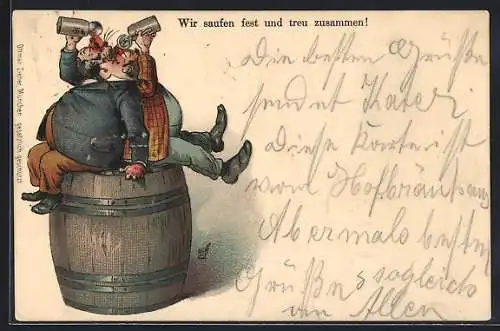 Wir saufen fest und treu zusammen!
Ottmar Zieher, München. gesetzlich geschützt
Die besten Grüße
sendet Kateri
diese Karte ist
vom Hofbräuhaus
Abermals besten
Grüße sogleich
an Allen